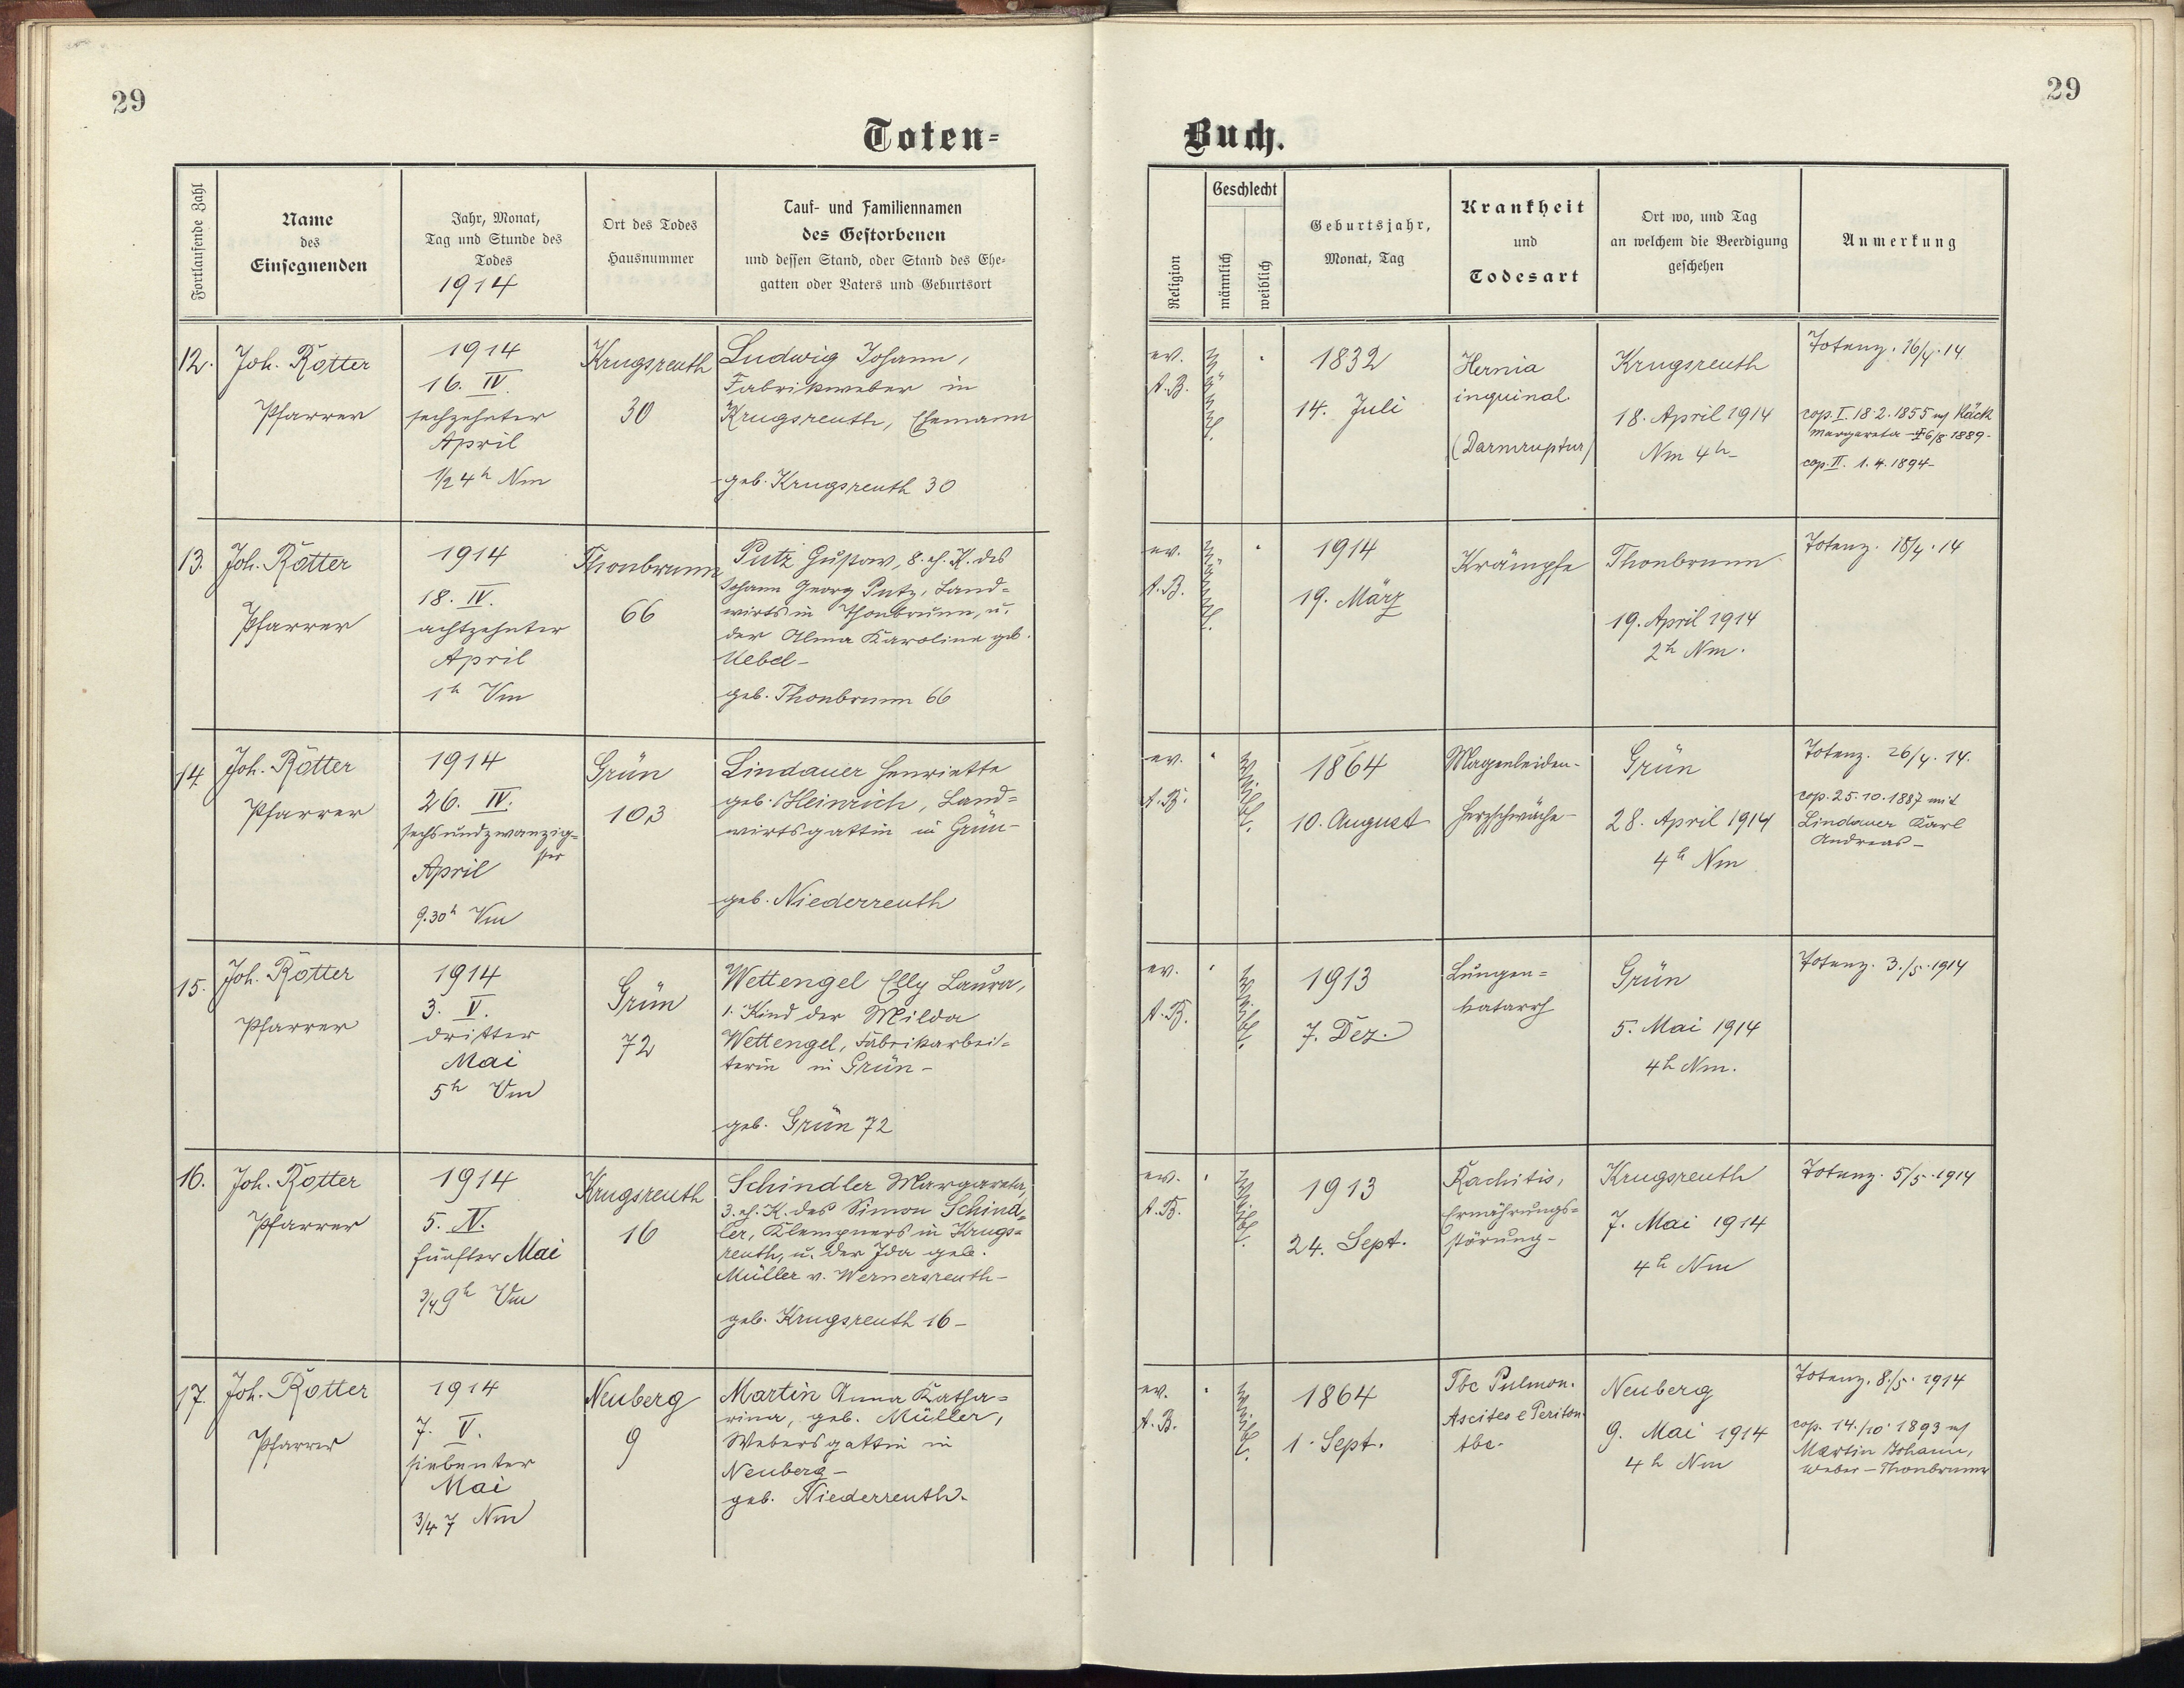 29
Toten-
Fortlaufende Zahl
Name
des
Einsegnenden
Jahr, Monat,
Tag und Stunde des
Todes
1914
Ort des Todes
Hausnummer
Tauf- und Familiennamen
des Gestorbenen
und dessen Stand, oder Stand des Ehe-
gatten oder Vaters und Geburtsort
12.
Joh. Rotter
Pfarrer
1914
16. IV.
sechzehnter
April
1/2 4h Nm
Krugsreuth
30
Ludwig Johann,
Fabrikweber in
Krugsreuth, Ehemann
geb. Krugsreuth 30
13.
Joh. Rotter
Pfarrer
1914
18. IV.
achtzehnter
April
1h Vm
Thonbrunn
66
Putz Gustav, 8. eh. K. des
Johann Georg Putz, Land-
wirts in Thonbrunn, u.
der Alma Karoline geb.
Uebel-
geb. Thonbrunn 66
14.
Joh. Rotter
Pfarrer
1914
26. IV.
sechsundzwanzig-
ster
April
9.30h Vm
Grün
103
Lindauer Henriette
geb. Heinrich, Land-
wirtsgattin in Grün-
geb. Niederreuth
15.
Joh. Rotter
Pfarrer
1914
3. V.
dritter
Mai
5h Vm
Grün
72
Wettengel Elly Laura,
1. Kind der Milda
Wettengel, Fabrikarbei-
terin in Grün-
geb. Grün 72
16.
Joh. Rotter
Pfarrer
1914
5. V.
fünfter Mai
3/4 9h Vm
Krugsreuth
16
Schindler Margareta,
3. eh. K. des Simon Schind-
ler, Klempners in Krugs-
reuth, u. der Ida geb.
Müller v. Wernersreuth-
geb. Krugsreuth 16-
17.
Joh. Rotter
Pfarrer
1914
7. V.
siebenter
Mai
3/4 7 Nm
Neuberg
9
Martin Anna Katha-
rina, geb. Müller,
Webersgattin in
Neuberg-
geb. Niederreuth-
29
Buch.
Religion
Geschlecht
männlich
weiblich
Geburtsjahr,
Monat, Tag
Krankheit
und
Todesart
Ort wo, und Tag
an welchem die Beerdigung
geschehen
Anmerkung
ev.
A. B.
männl.
1832
14. Juli
Hernia
inguinal.
(Darmruptur)
Krugsreuth
18. April 1914
Nm 4h-
Totenz. 16/4. 14.
cop. I. 18.2.1855
Margareta - 6/8 1889-
cop. II. 1.4.1894-
ev.
A. B.
männl.
1914
19. März
Krämpfe
Thonbrunn
19. April 1914
2h Nm.
Totenz. 18/4. 14
ev.
A. B.
weibl.
1864
10. August
Magenleiden-
Herzschwäche-
Grün
28. April 1914
4h Nm
Totenz. 26/4. 14.
cop. 25.10.1887 mit
Lindauer Karl
Andreas-
ev.
A. B.
weibl.
1913
7. Dez.
Lungen-
katarrh
Grün
5. Mai 1914
4h Nm.
Totenz. 3./5. 1914
ev.
A. B.
weibl.
1913
24. Sept.
Rachitis,
Ernährungs-
störung-
Krugsreuth
7. Mai 1914
4h Nm
Totenz. 5/5. 1914
ev.
A. B.
weibl.
1864
1. Sept.
Tbc Pulmon.
Ascites e Periton.
tbc.
Neuberg
9. Mai 1914
4h Nm
Totenz. 8./5. 1914
cop. 14./10. 1893
Martin Johann,
Weber - Thonbrunn